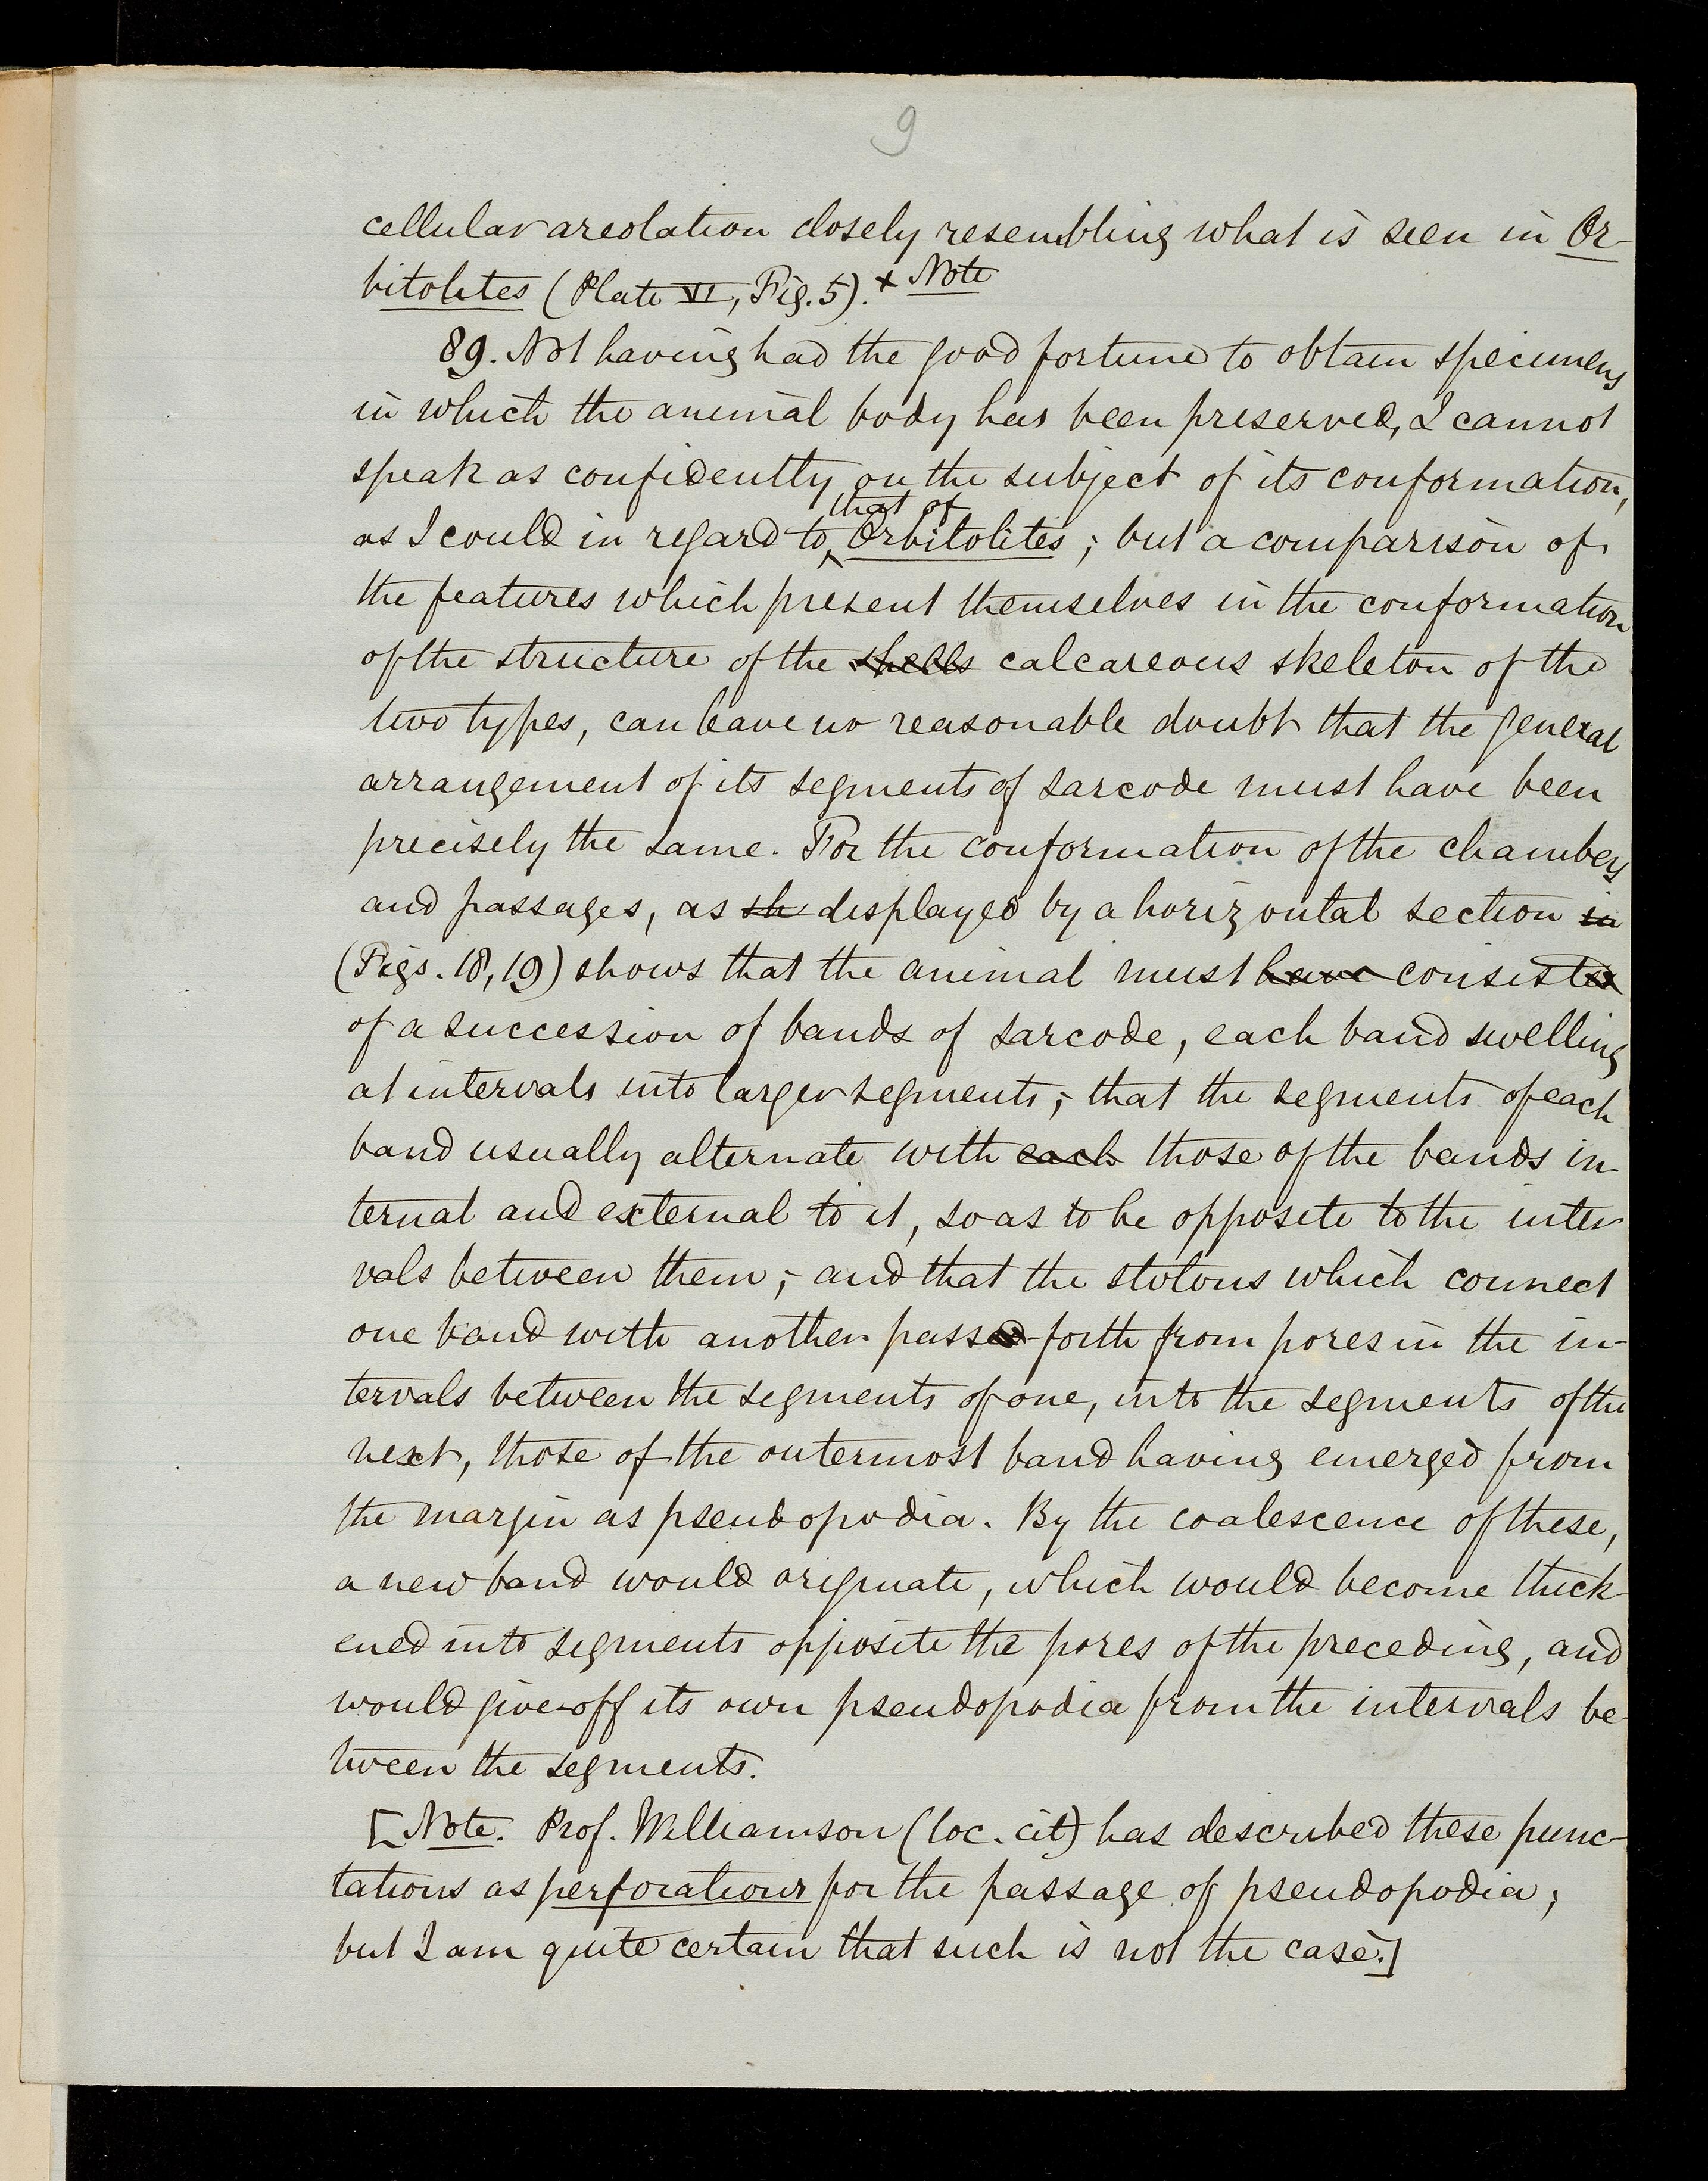 9
cellular areolation closely resembling what is seen in Or-
bitolites (Plate VI, Fig. 5). + Note
89. Not having had the good fortune to obtain specimens
in which the animal body has been preserved, I cannot
speak as confidently on the subject of its conformation,
that of
as I could in regard to Orbitolites ; but a comparison of
the features which present themselves in the conformation
of the structure of the shells calcareous skeleton of the
two types, can leave no reasonable doubt that the general
arrangement of its segments of sarcode must have been
precisely the same. For the conformation of the chambers
and passages, as sh displayed by a horizontal section in
(Figs. 18, 19) shows that the animal must have consisted
of a succession of bands of sarcode, each band swelling
at intervals into larger segments ; that the segments of each
band usually alternate with each those of the bands in-
ternal and external to it, so as to be opposite to the inter
vals between them ; and that the stolons which connect
one band with another passed forth from pores in the in-
tervals between the segments of one, into the segments of the
next, those of the outermost band having emerged from
the margin as pseudopodia. By the coalescence of these,
a new band would originate, which would become thick-
ened into segments opposite the pores of the preceding, and
would give off its own pseudopodia from the intervals be-
tween the segments.
[Note. Prof. Williamson (loc. cit) has described these punc-
tations as perforations for the passage of pseudopodia ;
but I am quite certain that such is not the case.]